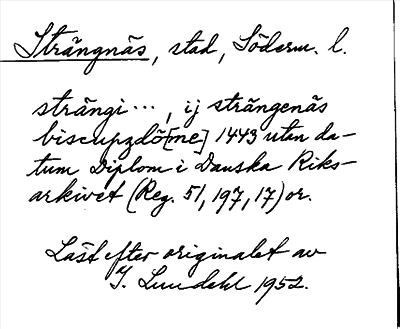 Strängnäs, stad, Söderm. l.
strängi..., ij strängenäs
biscupzdö[me] 1443 utan da-
tum Diplom i Danska Riks-
arkivet (Reg. 51, 197, 17) or.
Läst efter originalet av
I. Lundahl 1952.